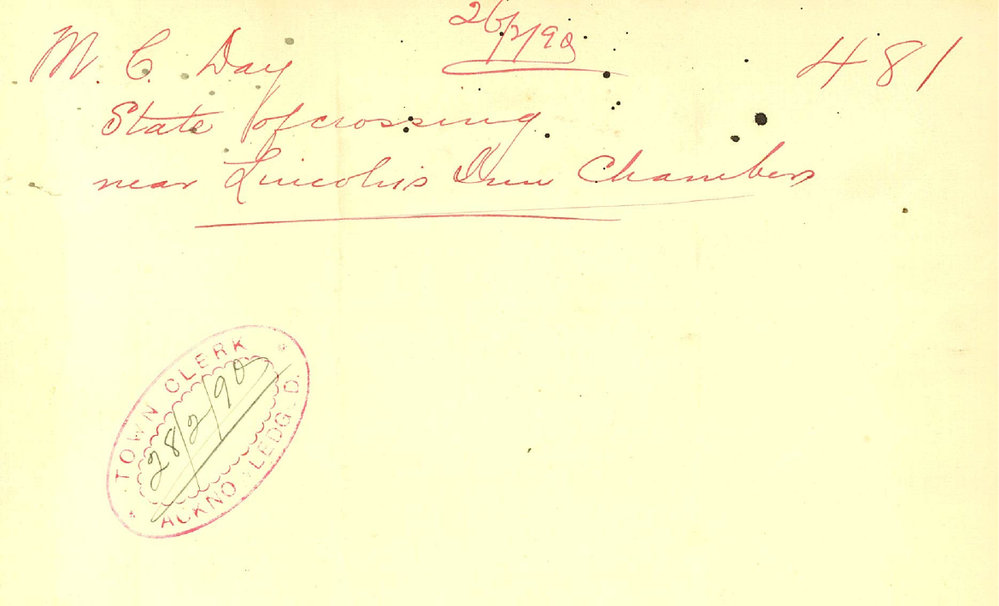 26/2/90
M. C. Day 481
State of crossing
near Lincolns Inn Chambers
TOWN CLERK
28/2/90
ACKNOWLEDG.D.